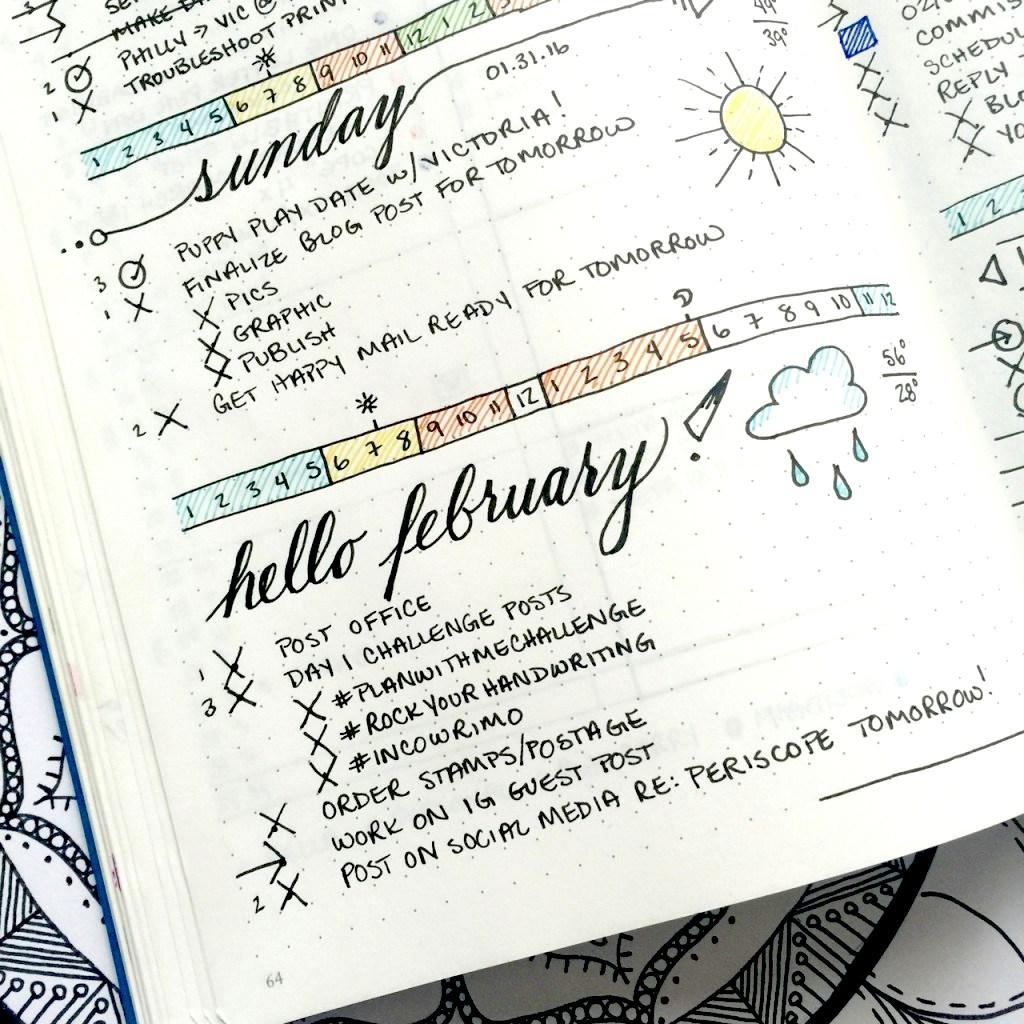 MAKE
PHILLY → VIC @
TROUBLESHOOT PRINT
1 2 3 4 5 6 7 8 9 10 11 12 1 2
01.31.16
39°
sunday
3 PUPPY PLAY DATE W/VICTORIA!
1 FINALIZE BLOG POST FOR TOMORROW
PICS
GRAPHIC
PUBLISH
2 GET HAPPY MAIL READY FOR TOMORROW
1 2 3 4 5 6 7 8 9 10 11 12 1 2 3 4 5 6 7 8 9 10 11 12
56°
28°
hello february!
1 POST OFFICE
3 DAY 1 CHALLENGE POSTS
#PLANWITHMECHALLENGE
#ROCKYOURHANDWRITING
#INCOWRIMO
ORDER STAMPS/POSTAGE
WORK ON IG GUEST POST
2 POST ON SOCIAL MEDIA RE: PERISCOPE TOMORROW!
64
COMMIS
SCHEDUL
REPLY
BLO
YO
1 2